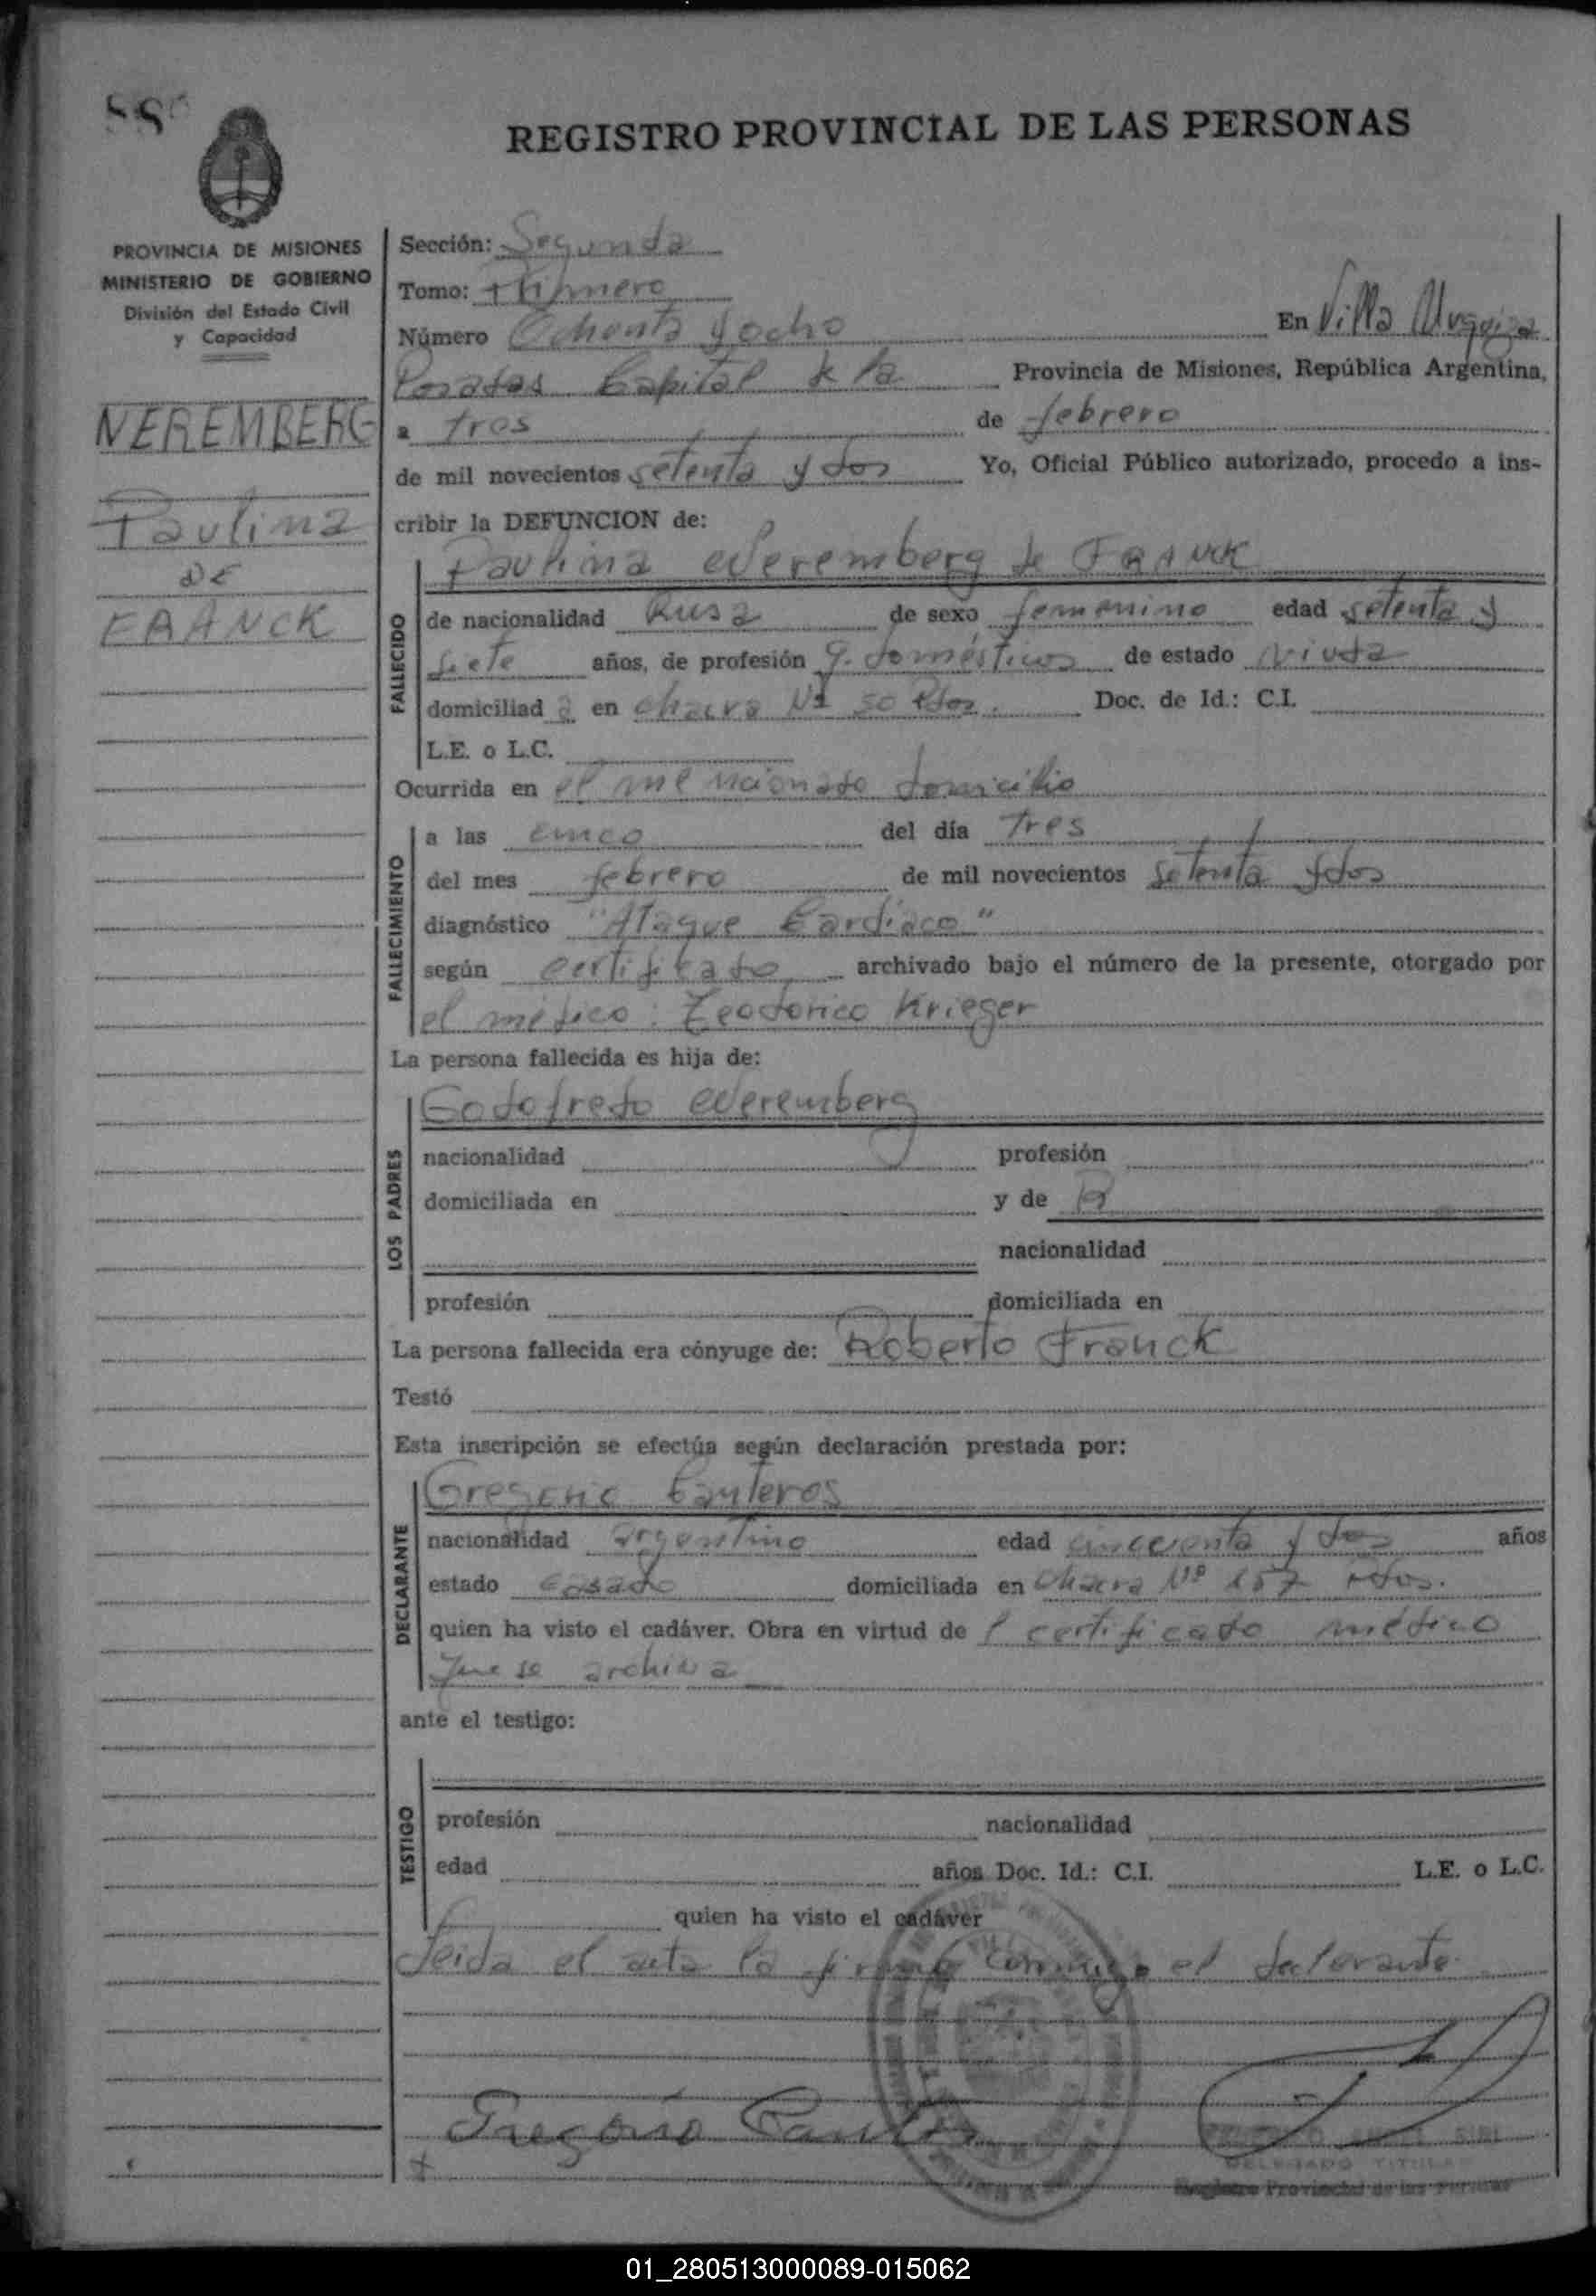 REGISTRO PROVINCIAL DE LAS PERSONAS
PROVINCIA DE MISIONES
MINISTERIO DE GOBIERNO
División del Estado Civil
y Capacidad
NEREMBERG
Paulina
DE
FRANCK
Sección: Segunda
Tomo: Primero
Número Ochenta y ocho En Villa Urquiza
Posadas Capital de la Provincia de Misiones, República Argentina,
a tres de febrero
de mil novecientos setenta y dos Yo, Oficial Público autorizado, procedo a ins-
cribir la DEFUNCION de:
FALLECIDO
Paulina Neremberg de FRANCK
de nacionalidad Rusa de sexo femenino edad setenta y
siete años, de profesión q. domésticos de estado viuda
domiciliad a en chacra Nº 50 Pdas. Doc. de Id.: C.I.
L.E. o L.C.
Ocurrida en el mencionado domicilio
FALLECIMIENTO
a las cinco del día tres
del mes febrero de mil novecientos setenta y dos
diagnóstico "Ataque Cardíaco"
según certificado archivado bajo el número de la presente, otorgado por
el médico: Teodorico Krieger
La persona fallecida es hija de:
LOS PADRES
Godofredo Neremberg
nacionalidad profesión
domiciliada en y de
nacionalidad
profesión domiciliada en
La persona fallecida era cónyuge de: Roberto Franck
Testó
Esta inscripción se efectúa según declaración prestada por:
DECLARANTE
Gregorio Canteros
nacionalidad argentino edad cincuenta y dos años
estado casado domiciliada en chacra Nº 157 Pdas.
quien ha visto el cadáver. Obra en virtud de l certificado médico
que se archiva
ante el testigo:
TESTIGO
profesión nacionalidad
edad años Doc. Id.: C.I. L.E. o L.C.
quien ha visto el cadáver
Leida el acta la firma conmigo el declarante.
Gregorio Canteros
SIRI
DELEGADO TITULAR
Registro Provincial de las Personas
01_280513000089-015062